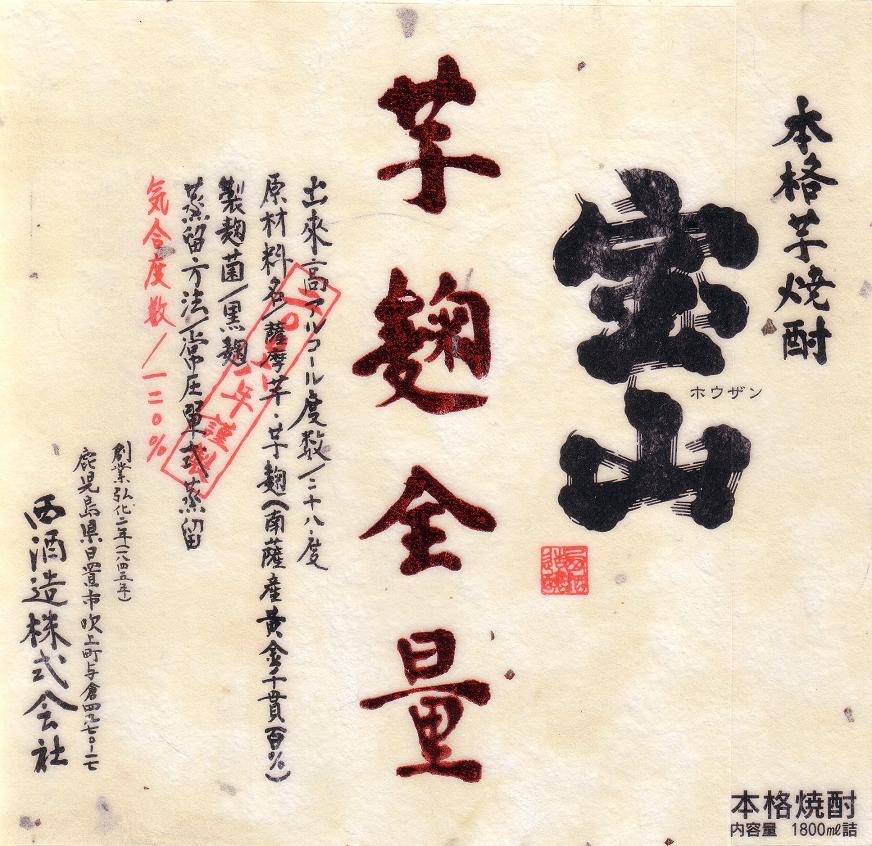 本格芋焼酎
宝山
ホウザン
芋麹全量
出来高アルコール度数/二十八・度
原材料名/薩摩芋・芋麹(南薩産黄金千貫百%)
製麹菌/黒麹
蒸留方法/常圧単式蒸留
気合度数/一二〇%
年謹製
創業弘化二年(一八四五年)
鹿児島県日置市吹上町与倉四九七〇-一七
西酒造株式会社
本格焼酎
内容量 1800㎖詰